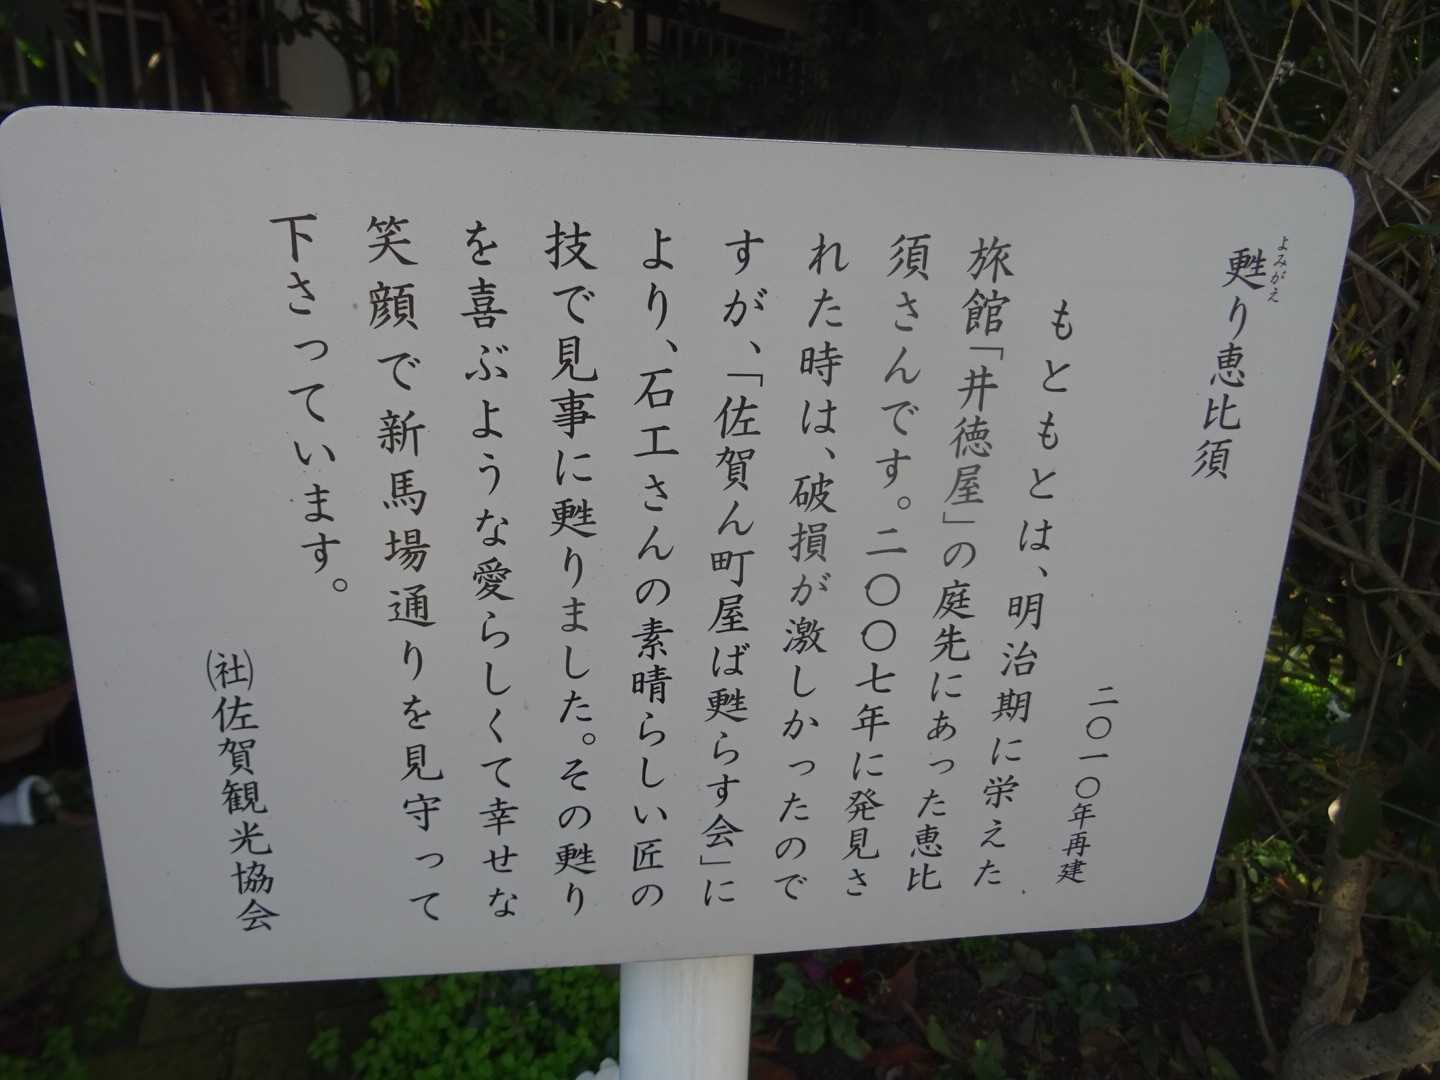 甦り恵比須
よみがえ
二〇一〇年再建
もともとは、明治期に栄えた
旅館「井徳屋」の庭先にあった恵比
須さんです。二〇〇七年に発見さ
れた時は、破損が激しかったので
すが、「佐賀ん町屋ば甦らす会」に
より、石工さんの素晴らしい匠の
技で見事に甦りました。その甦り
を喜ぶような愛らしくて幸せな
笑顔で新馬場通りを見守って
下さっています。
(社)佐賀観光協会